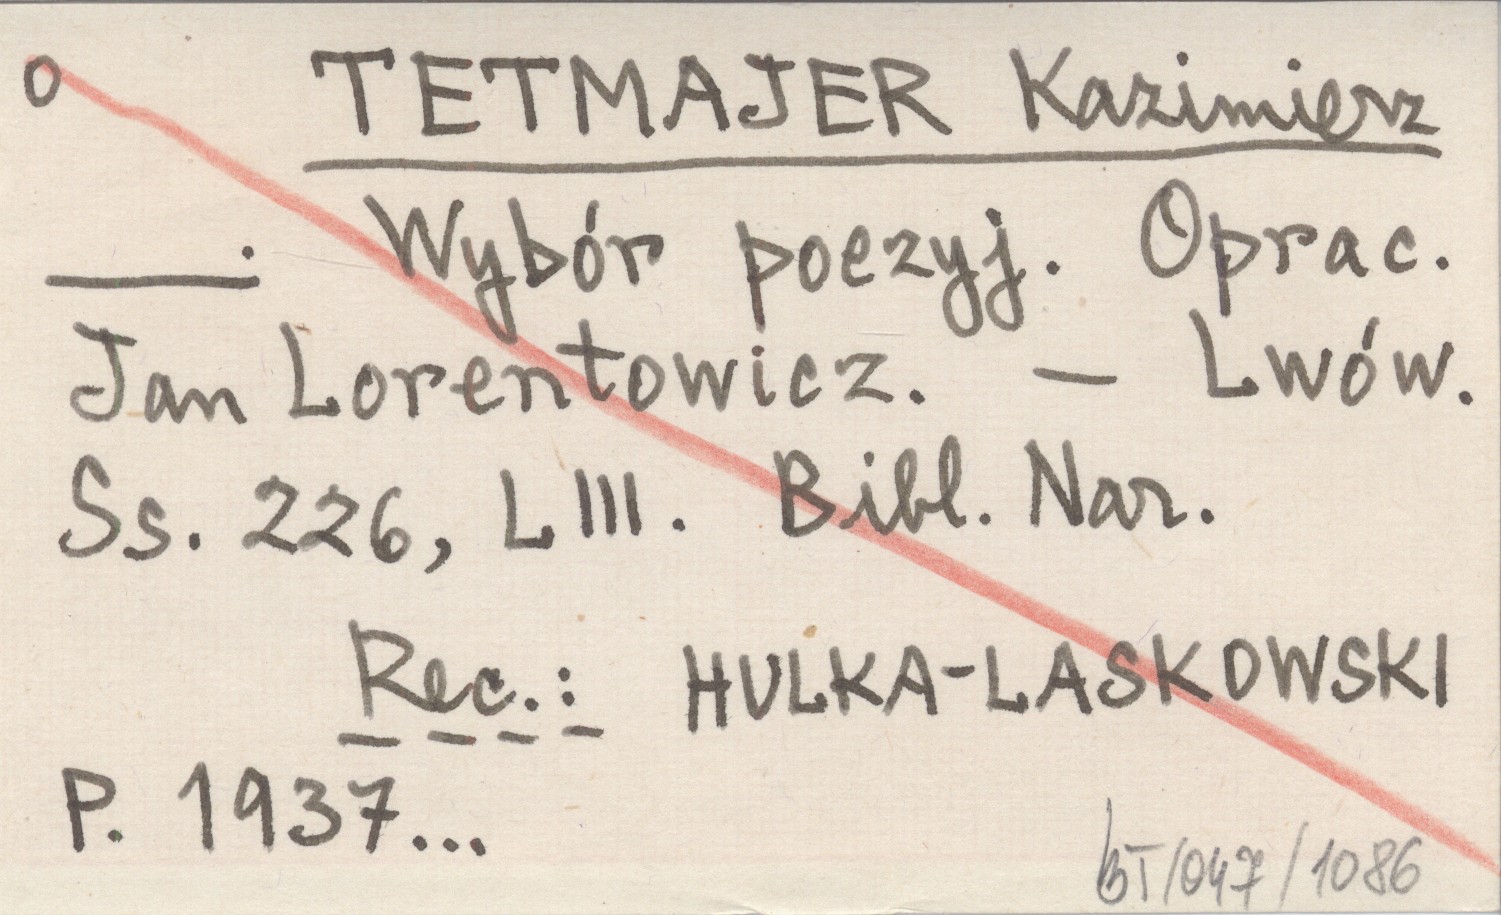 O TETMAJER Kazimierz
——. Wybór poezyj. Oprac.
Jan Lorentowicz. — Lwów.
Ss. 226, LIII. Bibl. Nar.
Rec.: HULKA-LASKOWSKI
P. 1937...
BT/047/1086